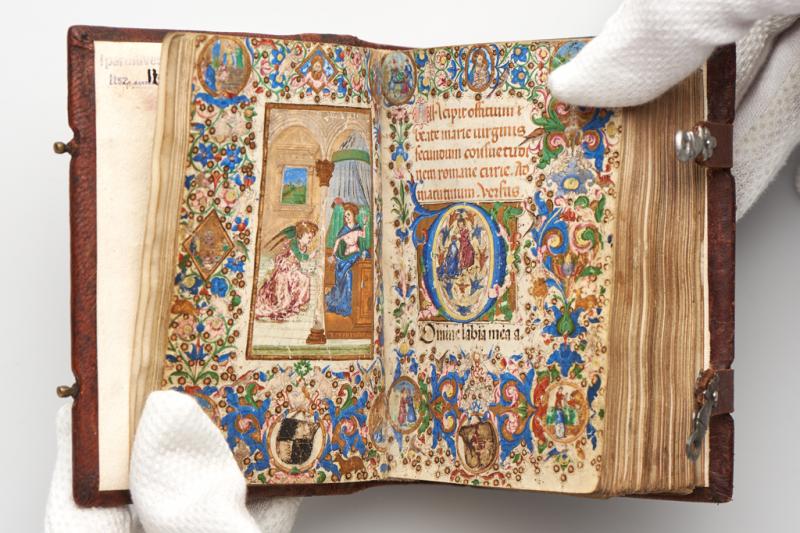 Incipit officium
beate marie virginis
secundum consuetudi
nem romane curie. Ad
matutinum Versus.
Domine labia mea a.